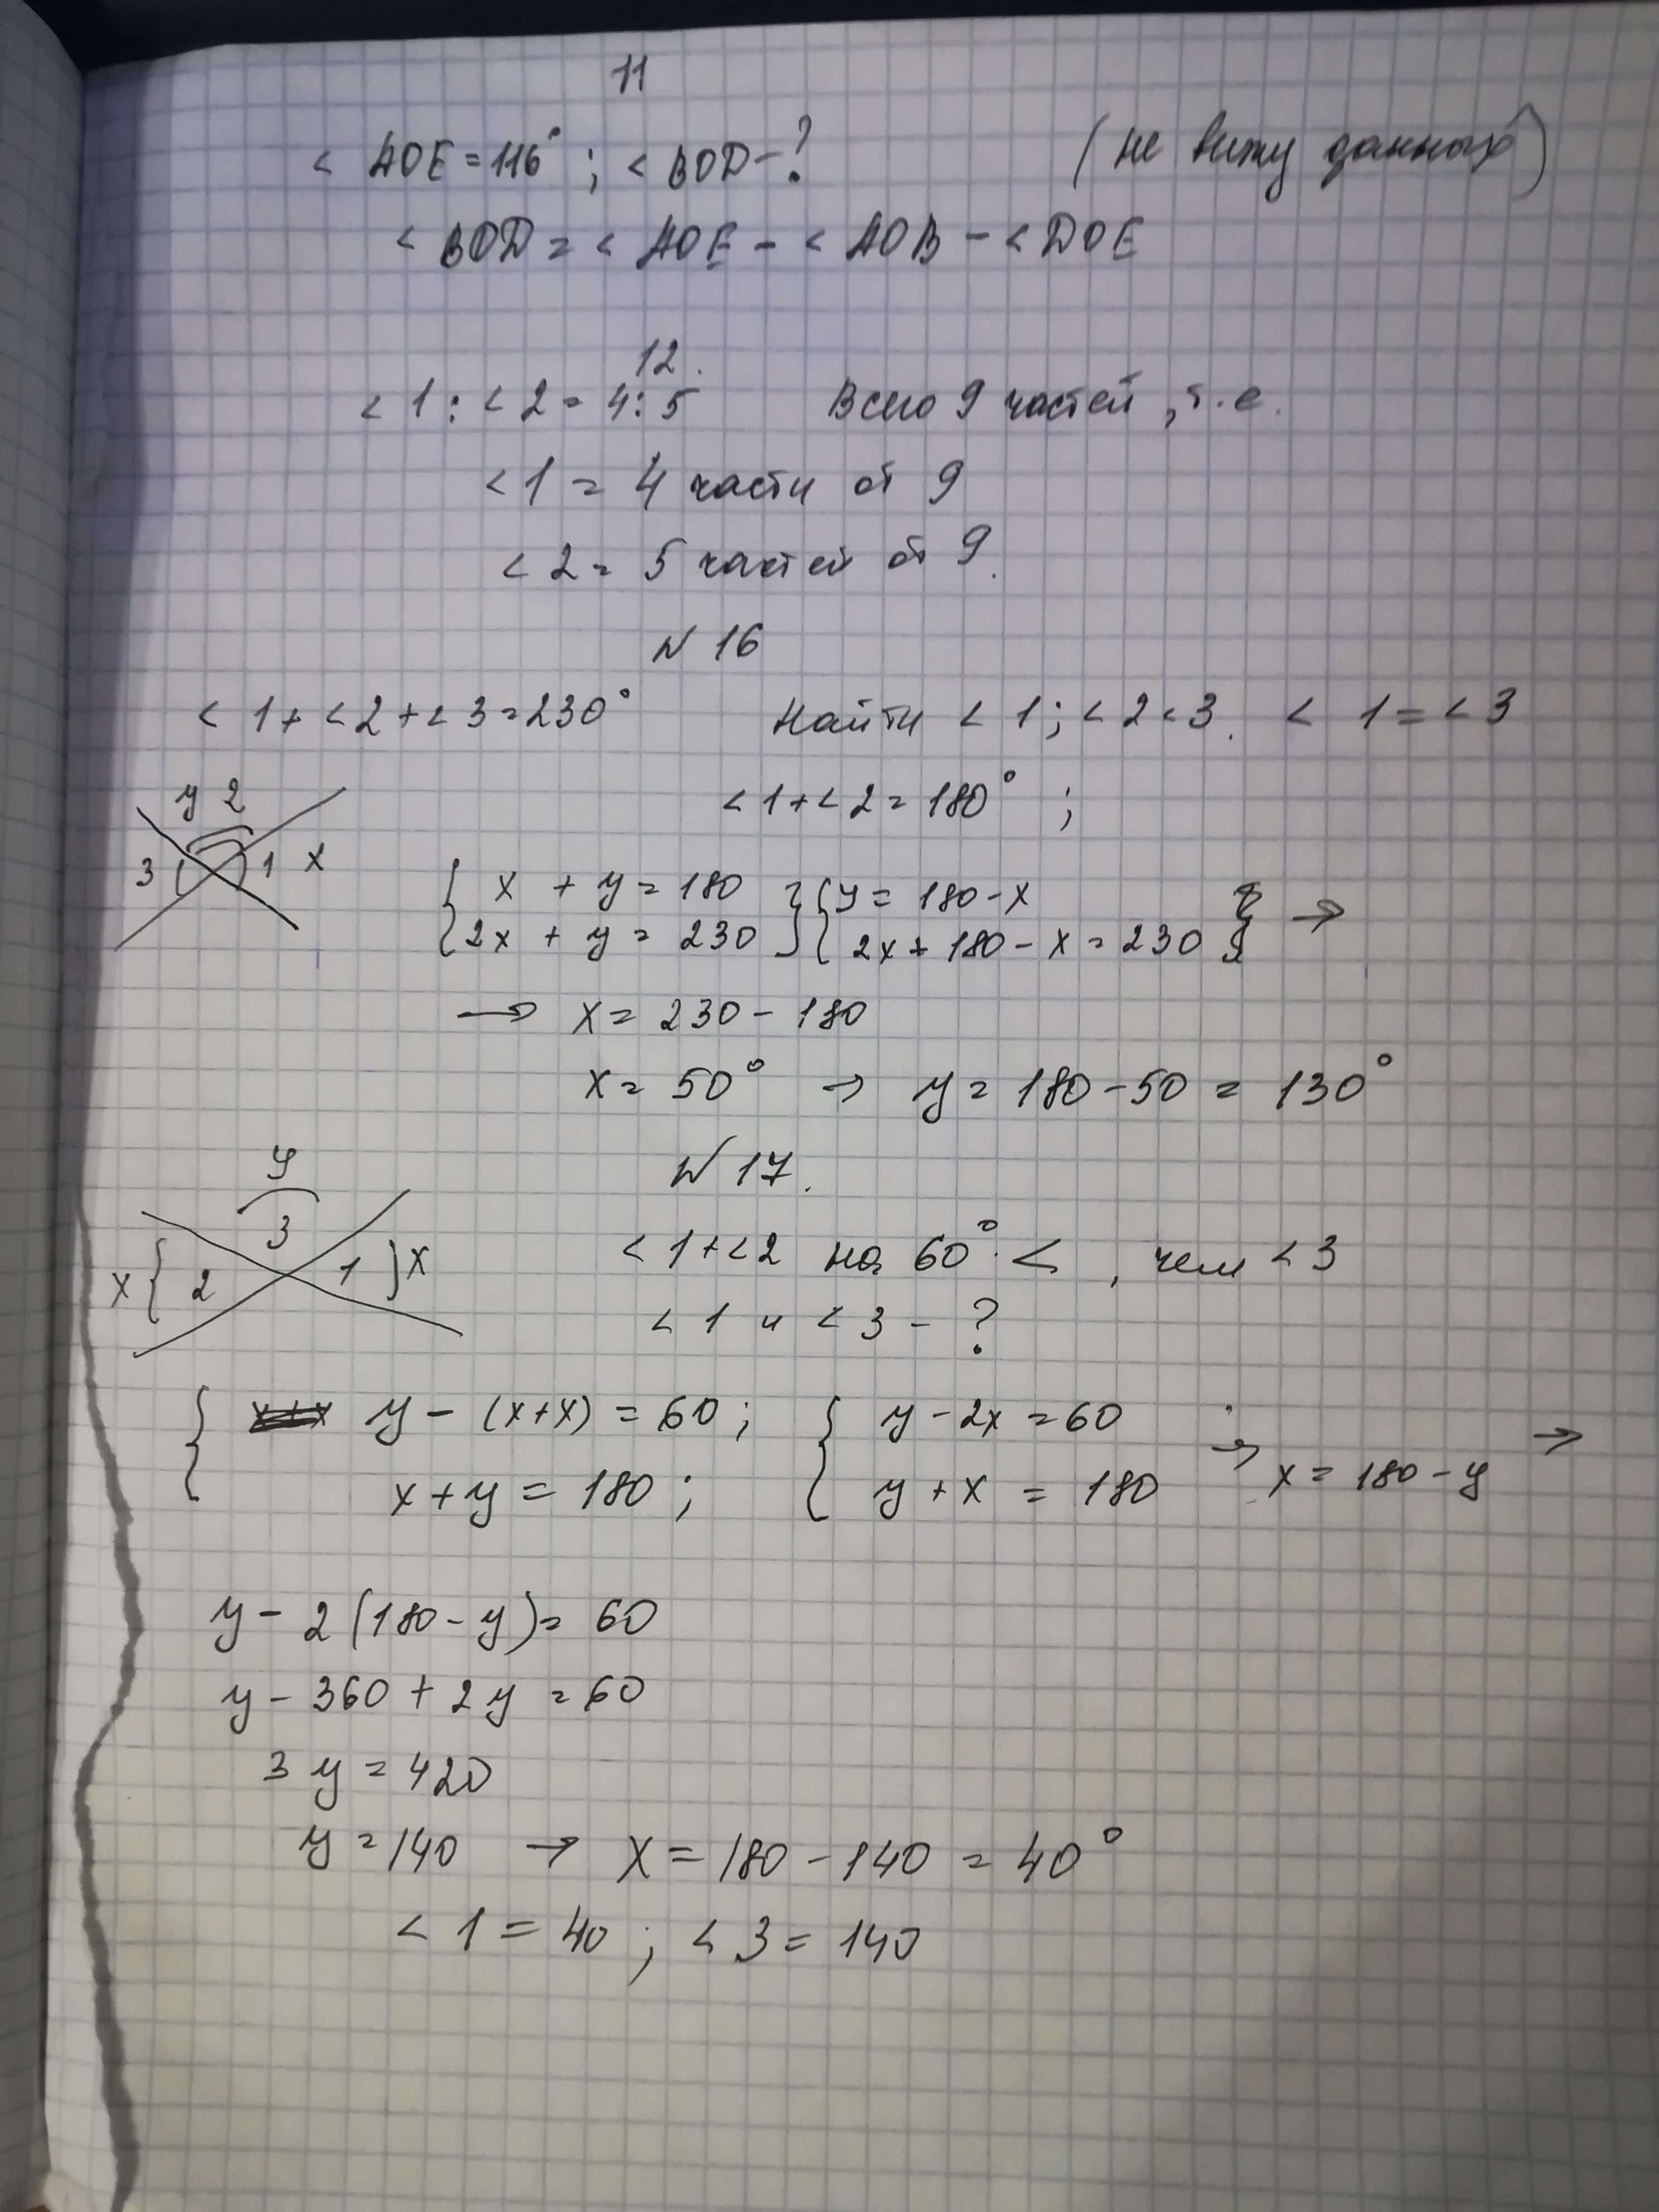 11
< AOE = 116° ; < BOD - ? (не вижу данных)
< BOD = < AOE - < AOB - < DOE
12.
< 1 : < 2 = 4 : 5 Всего 9 частей, т.е.
< 1 = 4 части от 9
< 2 = 5 частей от 9.
N 16
< 1 + < 2 + < 3 = 230° Найти < 1 ; < 2 < 3. < 1 = < 3
y 2
3 1 x
< 1 + < 2 = 180° ;
{ x + y = 180 } { y = 180 - x }
{ 2x + y = 230 } { 2x + 180 - x = 230 } →
→ x = 230 - 180
x = 50° → y = 180 - 50 = 130°
N 17.
y
3
x { 2 1 ) x
< 1 + < 2 на 60° < , чем < 3
< 1 и < 3 - ?
{ y - (x + x) = 60 ; { y - 2x = 60
x + y = 180 ; y + x = 180 → x = 180 - y →
y - 2 (180 - y) = 60
y - 360 + 2y = 60
3 y = 420
y = 140 → x = 180 - 140 = 40°
< 1 = 40 ; < 3 = 140